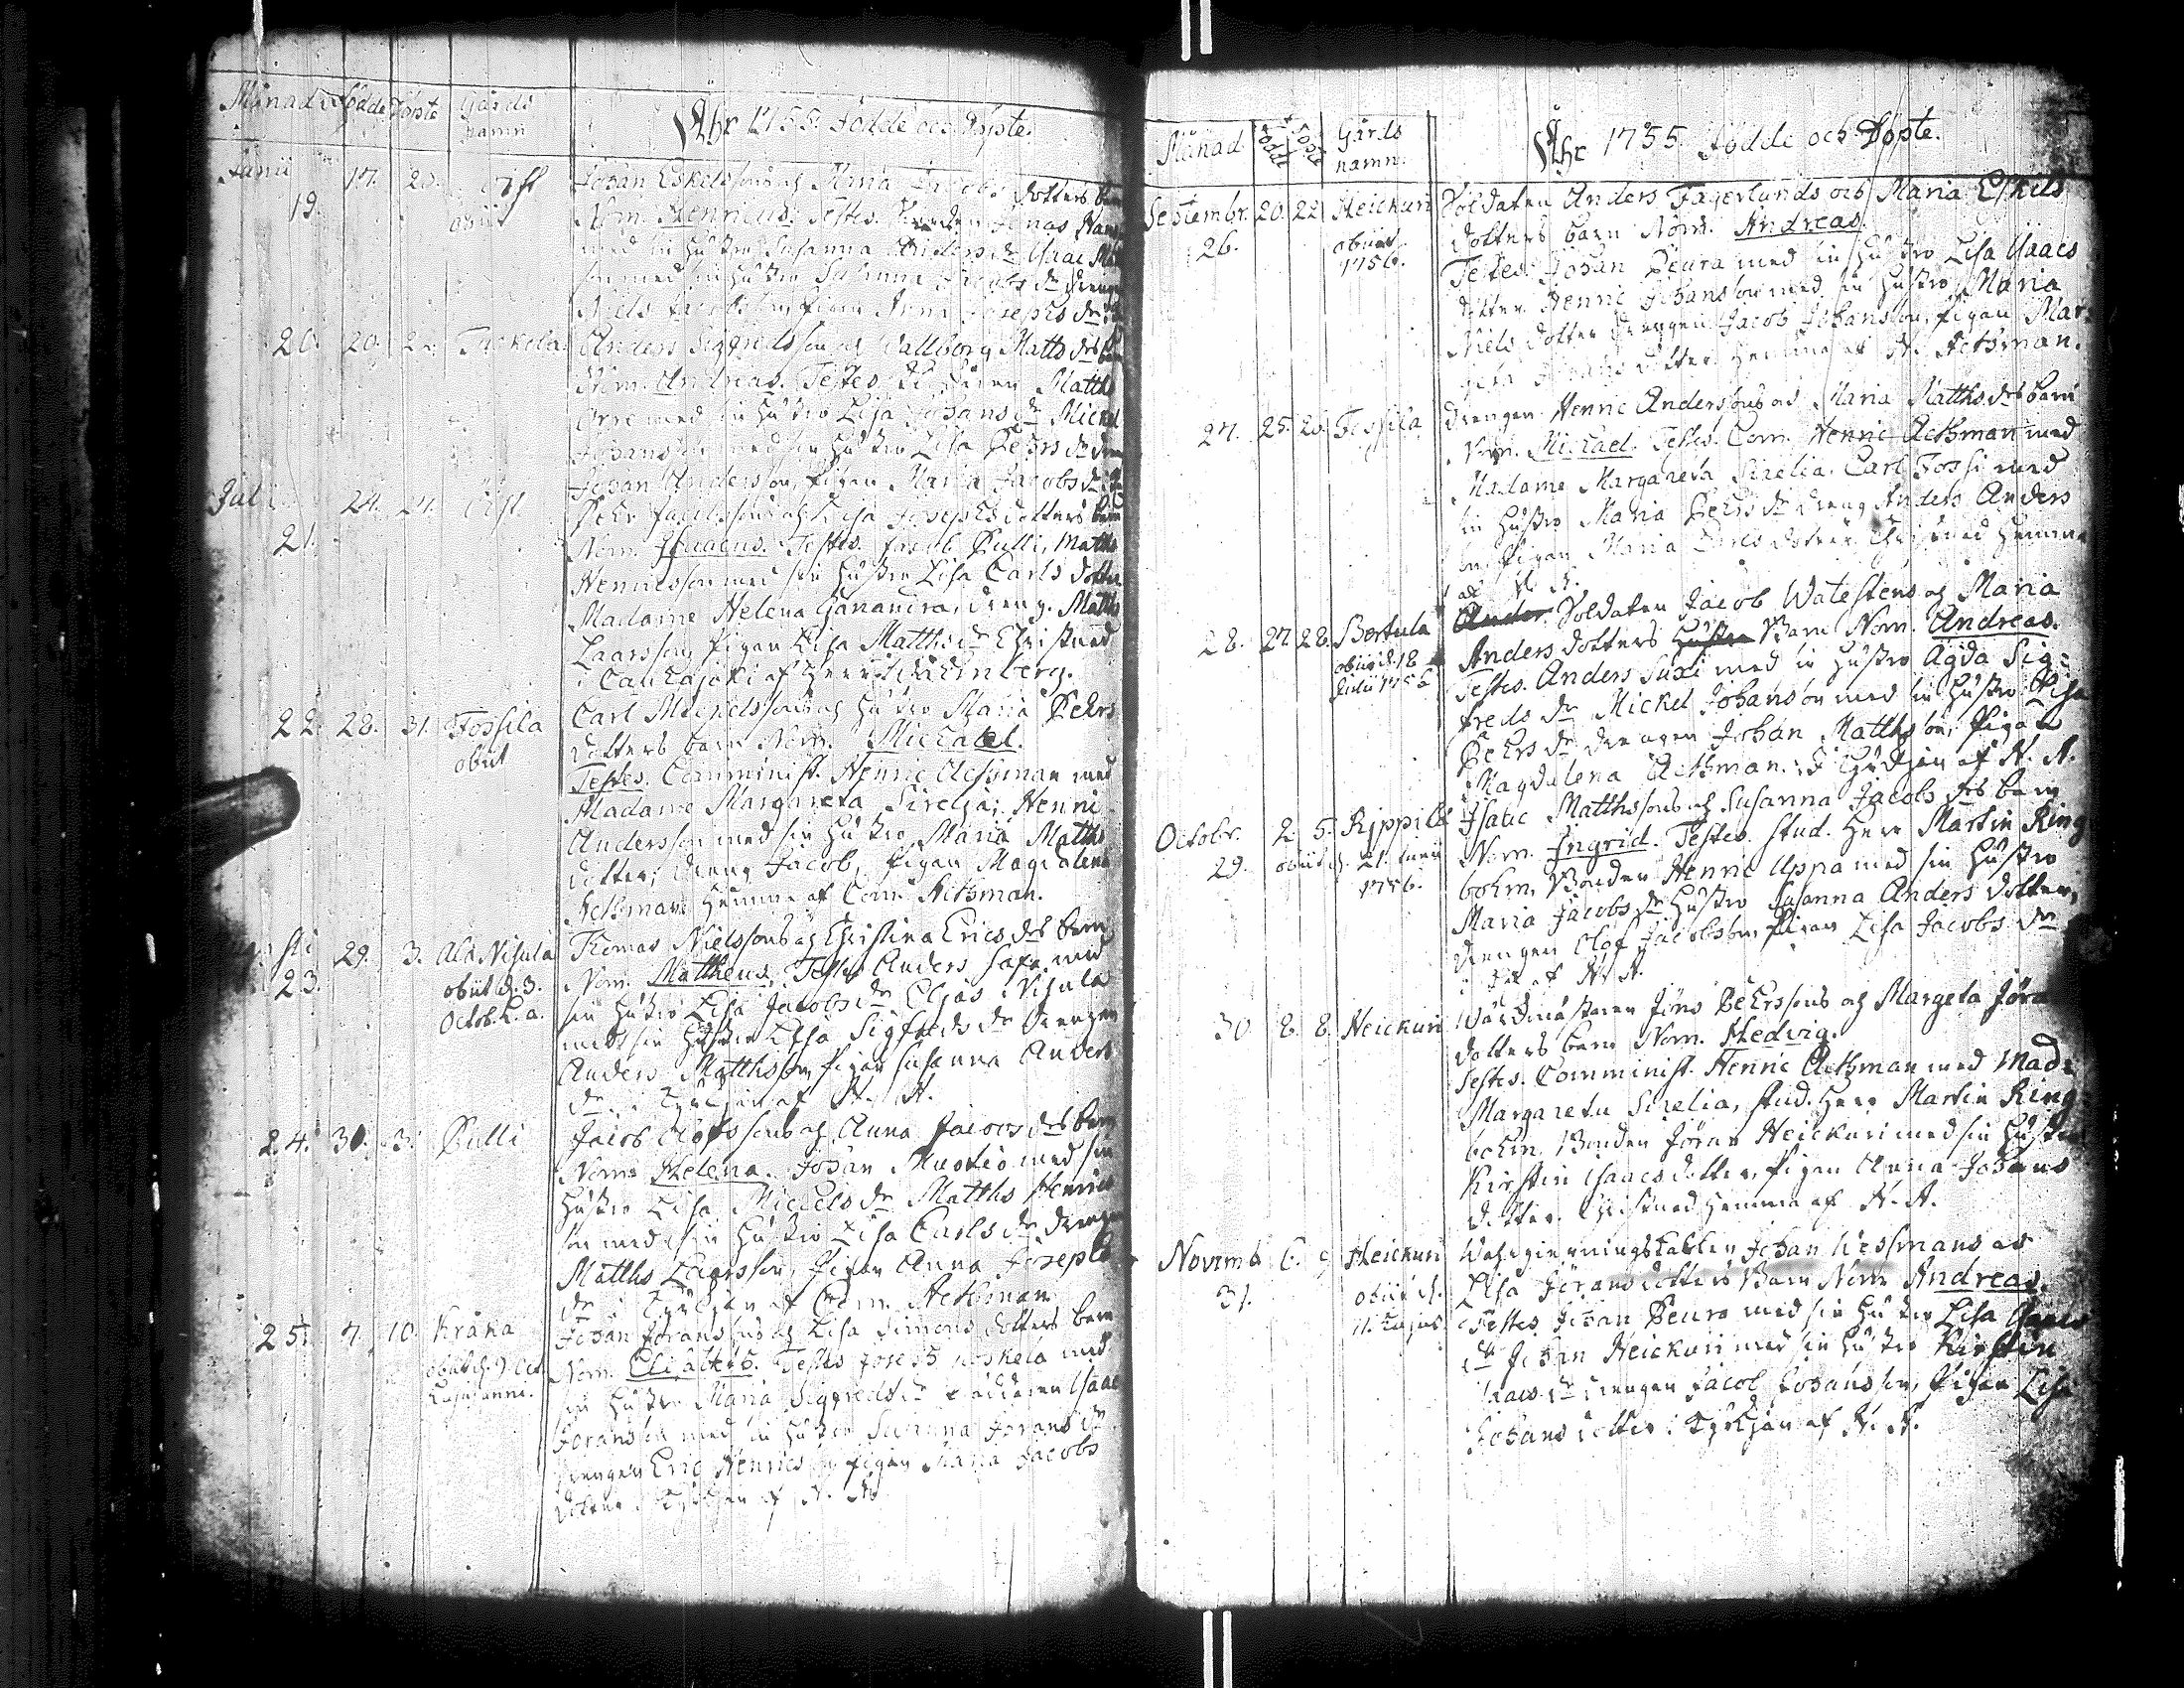 Månad Födde Döpte Gårds namn
Åhr 1755. Födde och Döpte.
Junii 17. 20.
19. obiit
Johan Eskelssons och Maria Jacobs dotters barn
Nom. Henricus. Testes. Jonas
med sin hustru Susanna Anders dr Isaac
son med sin hustru Susanna Jacobs dr dreng
Niels Jacobsson, pigan Anna Josephs dr
20. 20. 22. Tuckela
Anders Sigfredssons och Wallborg Matts drs barn
Nom. Andreas. Testes Matths
Orre med sin hustro Lisa Johans dr Mickel
Johansson med sin hustro Lisa Pehrs dr
Johan Andersson, Pigan Maria Jacobs dr
Juli 24. 24.
21.
Pehr och Lisa Josephs dotters barn
Nom. Testes. Jacob Pulli, Matths
Henricsson med sin hustro Lisa Carls dotter
Madame Helena Ganandra, dreng. Matths
Laarsson, Pigan Lisa Matths dr Christnad
i af Herr
22. 28. 31. Fossila
obiit
Carl Michelssons och hustro Maria Pehrs
dotters barn Nom. Michael.
Testes. Comminist. Henric Aethman med
Madame Margareta Sirelia, Henric
Andersson med sin hustro Maria Matths
dotter, dreng Jacob, Pigan Magdalena
Aethman hemma af Com. Aethman.
23. 29. 3. Ala Nisula
obiit d. 3.
Octob. h. a.
Thomas Nielssons och Christina Erics drs barn
Nom. Mattheus. Testes Anders med
sin hustro Lisa Jacobs dr Elias Nisula
med sin hustro Lisa Sigfreds dr Drengen
Anders Matthsson, Pigan Susanna Anders
dr. i Kyrkjan af H. A.
24. 30. 3. Pulli
Jacob Olofssons och Anna Jacobs drs barn
Nom. Helena. Johan med sin
hustro Lisa Michels dr Matths Henrics
son med sin hustro Lisa Carls dr drengen
Matths Laarsson, Pigan Anna Josephs
dr i Kyrkjan af Com. Aethman
25. 7. 10. Kråka
obiit d. 9 Oct.
Johan Joranssons och Lisa Simons dotters barn
Nom. Elisabeth. Testes Joseph med
sin hustro Maria Sigfreds dr Isaac
Joransson med sin hustro Susanna Jorans dr
drengen Eric Henricsson pigan Maria Jacobs
dotter i Kyrkjan af H. A.
Månad Födde Döpte Gårds namn.
Åhr 1755. Födde och Döpte.
Septembr. 20. 22. Heickuri
26. obiit
1756.
Soldaten Anders Fagerlunds och Maria Eskils
dotters barn Nom. Andreas.
Testes. Johan Peura med sin hustro Lisa Isaacs
dotter. Henric Johansson med sin hustro Maria
Niels dotter drengen Jacob Johansson, Pigan Mar
geta Johans dotter. hemma af H. Aethman.
27. 25. 26. Fossila
Drengen Henric Anderssons och Maria Matths drs barn
Nom. Michael. Testes. Com. Henric Aethman med
Madame Margareta Sirelia. Carl Fossi med
sin hustro Maria Pehrs dr dreng Anders Anders
son, Pigan Maria Carls dotter Christnad hemma
af H. A.
28. 27. 28. Bertula
obiit d. 18
Julii 1756
Soldaten Jacob Watestens och Maria
Anders dotters Barn Nom. Andreas.
Testes. Anders Susi med sin hustro Agda Sig:
freds dr Mickel Johansson med sin hustro Lisa
Pehrs dr drengen Johan Matthsson, Pigan
Magdalena Aethman. i Kyrkjan af H. A.
Octobr. 2. 5. Ryppilä
29. obiit d. 21. Junii
1756.
Isaac Matthssons och Susanna Jacobs drs barn
Nom. Ingrid. Testes. Stud. Herr Martin Ring
bohm, Bonden Henric Uppa med sin hustro
Maria Jacobs dr hustro Susanna Anders dotter,
drengen Olof Jacobsson, Pigan Lisa Jacobs dr
af H. A.
30. 8. 8. Heickuri
Jöns Pehrssons och Margeta Jöra
dotters barn Nom. Hedvig.
Testes. Comminist. Henric Aethman med Mad:
Margareta Sirelia, stud. Herr Martin Ring
bohm, Bonden Jöran Heickuri med sin hustro
Kirstin Isaacs dotter, Pigan Anna Johans
dotter. Christnad hemma af H. A.
Novemb. 6. 9. Heickuri
31. obiit d.
11.
Johan Wessmans och
Lisa Jörans dotters Barn Nom Andreas.
Testes Johan Peura med sin hustro Lisa Isaacs
dr Johan Heickuri med sin hustro Kirstin
Isaacs dr drengen Jacob Johansson, Pigan Lisa
Johans dotter i Kyrkjan af H. A.